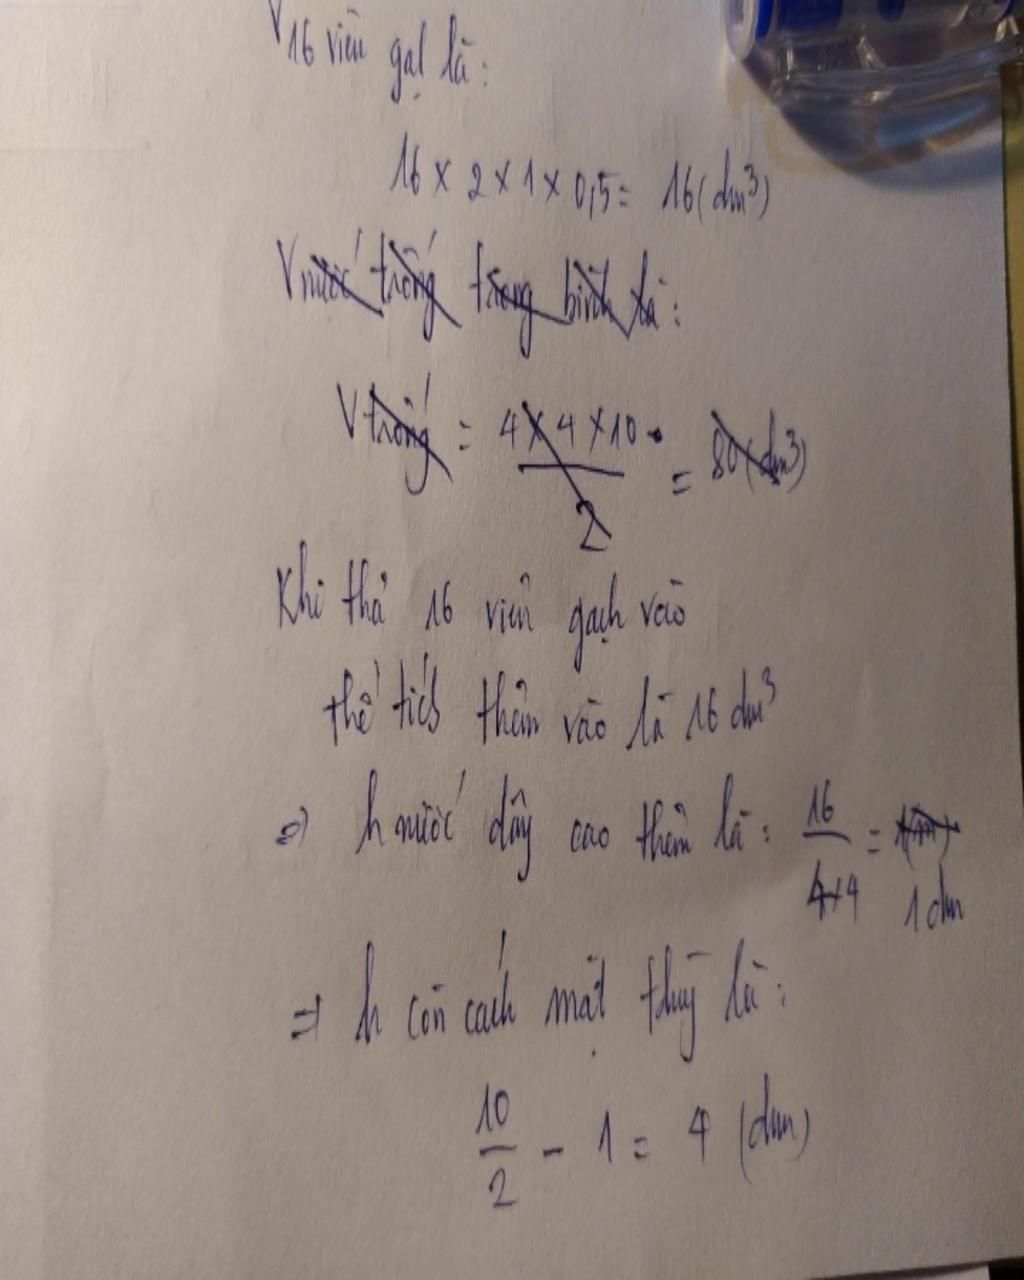 V 16 viên gạh là:
16 x 2 x 1 x 0,5 = 16 (dm³)
V nước trống trong bình là:
V trống = 4 x 4 x 10 / 2 = 80 (dm³)
Khi thả 16 viên gạch vào
thể tích thêm vào là 16 dm³
=> h nước dâng cao thêm là: 16 / 4x4 = 1 dm
=> h còn cách mặt thùg là:
10 / 2 - 1 = 4 (dm)